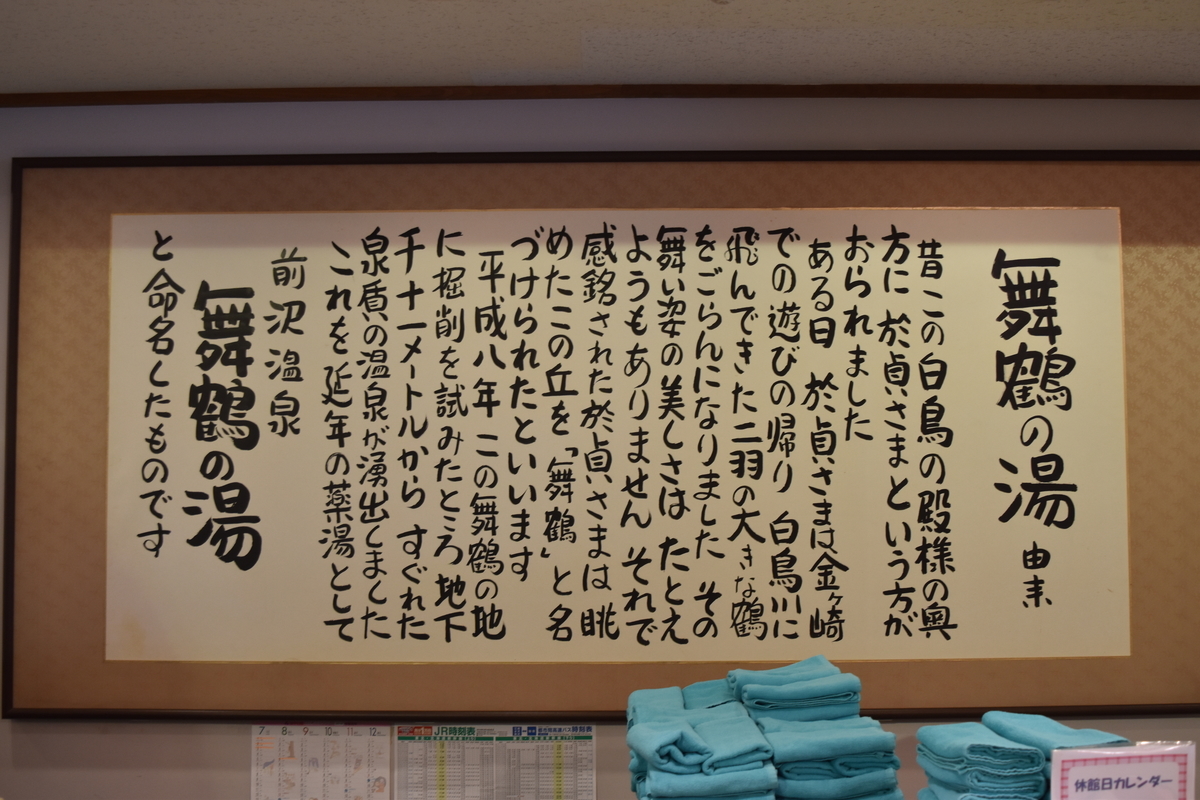 舞鶴の湯 由来
昔この白鳥の殿様の奥
方に 於貞さまという方が
おられました
ある日 於貞さまは金ヶ崎
での遊びの帰り 白鳥川に
飛んできた二羽の大きな鶴
をごらんになりました その
舞い姿の美しさは たとえ
ようもありません それで
感銘された於貞さまは 眺
めたこの丘を「舞鶴」と名
づけられたといいます
平成八年 この舞鶴の地
に掘削を試みたところ 地下
千十一メートルから すぐれた
泉質の温泉が湧出しました
これを 延年の薬湯として
前沢温泉
舞鶴の湯
と命名したものです
7 8 9 10 11 12
JR時刻表
休館日カレンダー